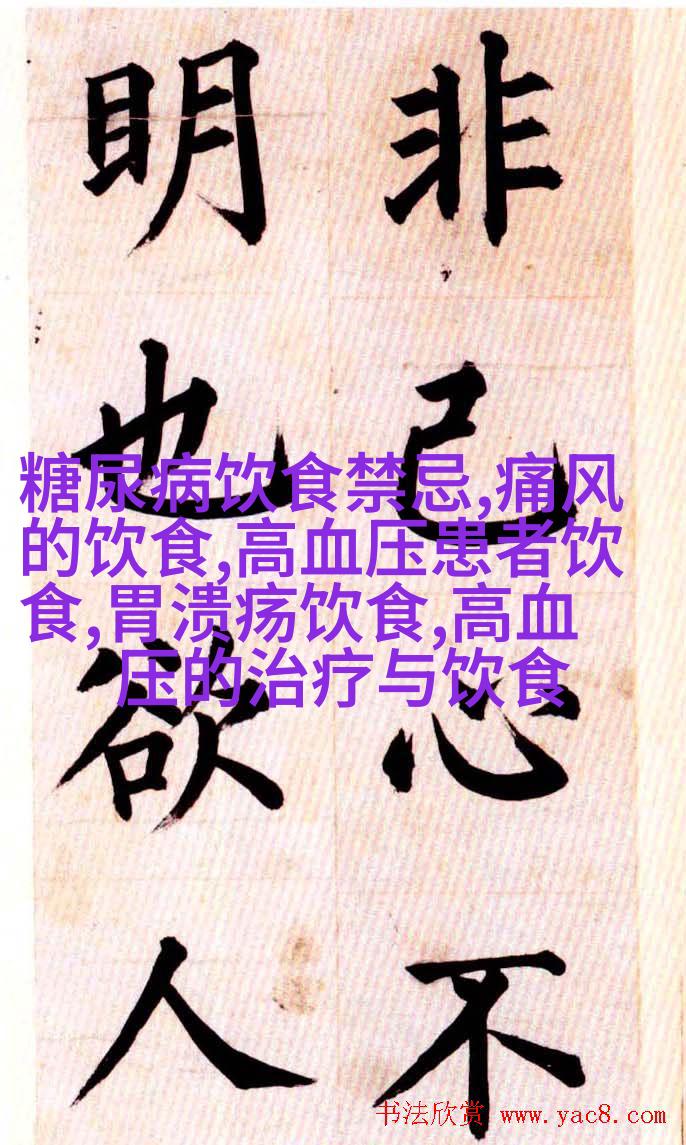 非己心不
明也欲人
糖尿病饮食禁忌,痛风
的饮食,高血压患者饮
食,胃溃疡饮食,高血
压的治疗与饮食
书法欣赏 www.yac8.com